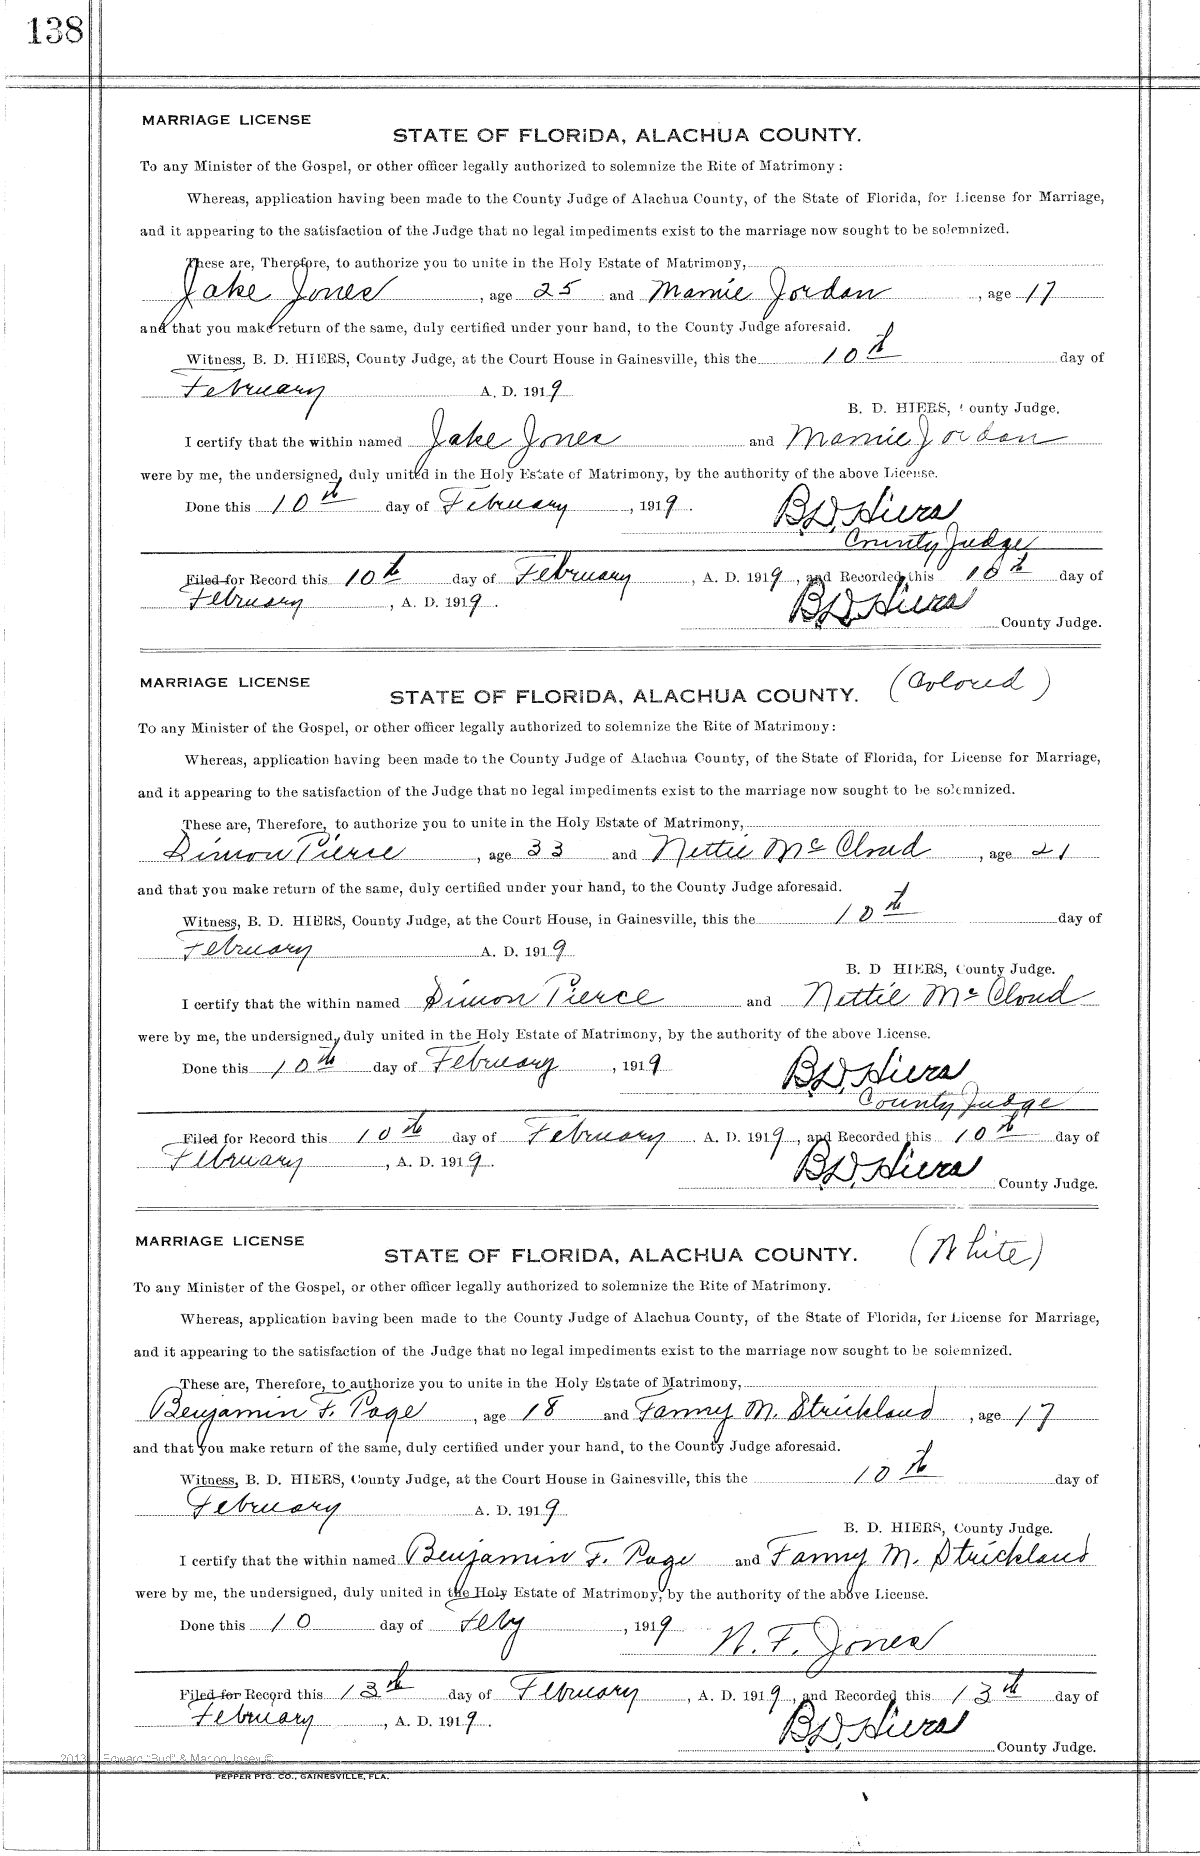 138
MARRIAGE LICENSE
STATE OF FLORIDA, ALACHUA COUNTY.
To any Minister of the Gospel, or other officer legally authorized to solemnize the Rite of Matrimony:
Whereas, application having been made to the County Judge of Alachua County, of the State of Florida, for License for Marriage,
and it appearing to the satisfaction of the Judge that no legal impediments exist to the marriage now sought to be solemnized.
These are, Therefore, to authorize you to unite in the Holy Estate of Matrimony,
Jake Jones, age 25 and Mamie Jordan, age 17
and that you make return of the same, duly certified under your hand, to the County Judge aforesaid.
Witness, B. D. HIERS, County Judge, at the Court House in Gainesville, this the 10th day of
February A. D. 1919
B. D. HIERS, County Judge.
I certify that the within named Jake Jones and Mamie Jordan
were by me, the undersigned, duly united in the Holy Estate of Matrimony, by the authority of the above License.
Done this 10th day of February, 1919.
B.D. Hiers
County Judge
Filed for Record this 10th day of February, A. D. 1919, and Recorded this 10th day of
February, A. D. 1919.
B.D. Hiers County Judge.
MARRIAGE LICENSE
STATE OF FLORIDA, ALACHUA COUNTY. (Colored)
To any Minister of the Gospel, or other officer legally authorized to solemnize the Rite of Matrimony:
Whereas, application having been made to the County Judge of Alachua County, of the State of Florida, for License for Marriage,
and it appearing to the satisfaction of the Judge that no legal impediments exist to the marriage now sought to be solemnized.
These are, Therefore, to authorize you to unite in the Holy Estate of Matrimony,
Simon Pierce, age 33 and Nettie McCloud, age 21
and that you make return of the same, duly certified under your hand, to the County Judge aforesaid.
Witness, B. D. HIERS, County Judge, at the Court House, in Gainesville, this the 10th day of
February A. D. 1919
B. D HIERS, County Judge.
I certify that the within named Simon Pierce and Nettie McCloud
were by me, the undersigned, duly united in the Holy Estate of Matrimony, by the authority of the above License.
Done this 10th day of February, 1919
B.D. Hiers
County Judge
Filed for Record this 10th day of February. A. D. 1919, and Recorded this 10th day of
February, A. D. 1919.
B.D. Hiers County Judge.
MARRIAGE LICENSE
STATE OF FLORIDA, ALACHUA COUNTY. (White)
To any Minister of the Gospel, or other officer legally authorized to solemnize the Rite of Matrimony.
Whereas, application having been made to the County Judge of Alachua County, of the State of Florida, for License for Marriage,
and it appearing to the satisfaction of the Judge that no legal impediments exist to the marriage now sought to be solemnized.
These are, Therefore, to authorize you to unite in the Holy Estate of Matrimony,
Benjamin F. Page, age 18 and Fanny M. Strickland, age 17
and that you make return of the same, duly certified under your hand, to the County Judge aforesaid.
Witness, B. D. HIERS, County Judge, at the Court House in Gainesville, this the 10th day of
February A. D. 1919
B. D. HIERS, County Judge.
I certify that the within named Benjamin F. Page and Fanny M. Strickland
were by me, the undersigned, duly united in the Holy Estate of Matrimony, by the authority of the above License.
Done this 10 day of Feby, 1919
N. F. Jones
Filed for Record this 13th day of February, A. D. 1919, and Recorded this 13th day of
February, A. D. 1919.
B.D. Hiers County Judge.
2013 Edward "Bud" & Marion Josey ©
PEPPER PTG. CO., GAINESVILLE, FLA.